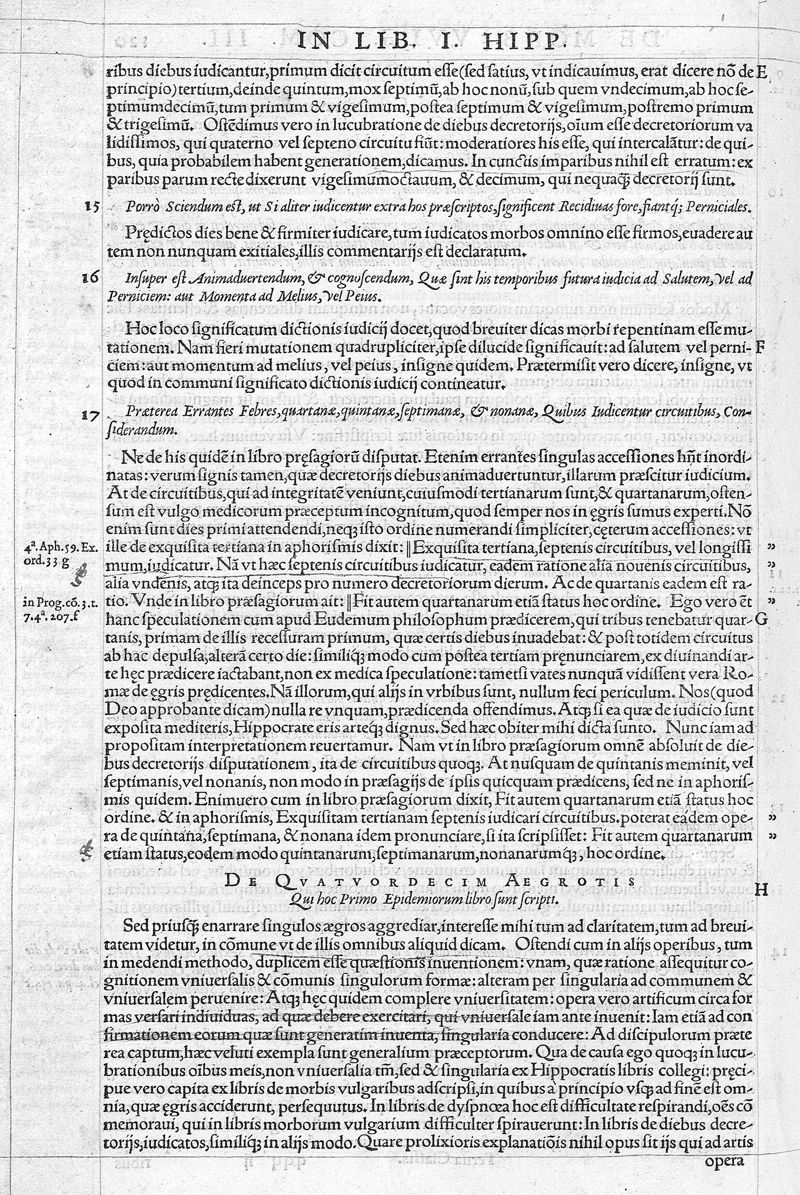 IN LIB. I. HIPP.
ribus diebus iudicantur,primum dicit circuitum esse(sed satius, vt indicauimus, erat dicere nõ de E
principio)tertium,deinde quintum,mox septimũ,ab hoc nonũ,sub quem vndecimum,ab hoc se-
ptimumdecimũ,tum primum & vigesimum,postea septimum & vigesimum,postremo primum
& trigesimũ. Ostẽdimus vero in lucubratione de diebus decretorijs,oĩum esse decretoriorum va
lidissimos, qui quaterno vel septeno circuitu fiũt: moderatiores his esse, qui intercalãtur: de qui-
bus, quia probabilem habent generationem,dicamus. In cunctis imparibus nihil est erratum: ex
paribus parum recte dixerunt vigesimumoctauum, & decimum, qui nequaq̃ decretorij sunt.
15 Porrò Sciendum est, ut Si aliter iudicentur extra hos præscriptos,significent Recidiuas fore,fiantq; Perniciales.
Prędictos dies bene & firmiter iudicare,tum iudicatos morbos omnino esse firmos,euadere au
tem non nunquam exitiales,illis commentarijs est declaratum.
16 Insuper est Animaduertendum, & cognoscendum, Quæ sint his temporibus futura iudicia ad Salutem, vel ad
Perniciem: aut Momenta ad Melius, vel Peius.
Hoc loco significatum dictionis iudicij docet,quod breuiter dicas morbi repentinam esse mu-
tationem. Nam fieri mutationem quadrupliciter,ipse dilucide significauit: ad salutem vel perni- F
ciem: aut momentum ad melius, vel peius, insigne quidem. Prætermisit vero dicere, insigne, vt
quod in communi significato dictionis iudicij contineatur.
17 Præterea Errantes Febres,quartanæ,quintanæ,septimanæ, & nonanæ, Quibus Iudicentur circuitibus, Con-
siderandum.
Ne de his quidẽ in libro pręsagiorũ disputat. Etenim errantes singulas accessiones hñt inordi-
natas: verum signis tamen,quæ decretorijs diebus animaduertuntur,illarum præscitur iudicium.
At de circuitibus,qui ad integritatẽ veniunt,cuiusmodi tertianarum sunt,& quartanarum,osten-
sum est vulgo medicorum præceptum incognitum,quod semper nos in ęgris sumus experti.Nõ
enim sunt dies primi attendendi,neq; isto ordine numerandi simpliciter,cęterum accessiones: vt
4ª. Aph. 59. Ex. ille de exquisita tertiana in aphorismis dixit: ||Exquisita tertiana,septenis circuitibus, vel longissi „
ord. 33 g mum,iudicatur. Nã vt hæc septenis circuitibus iudicatur, eadem ratione alia nouenis circuitibus, „
alia vndenis, atq; ita deinceps pro numero decretoriorum dierum. Ac de quartanis eadem est ra-
in Prog.cõ.3.t. tio. Vnde in libro præsagiorum ait: ||Fit autem quartanarum etiã status hoc ordine. Ego vero ẽt „
7.4ª.207.f hanc speculationem cum apud Eudemum philosophum prædicerem,qui tribus tenebatur quar- G
tanis, primam de illis recessuram primum, quæ certis diebus inuadebat: & post totidem circuitus
ab hac depulsa,alterã certo die: similiq; modo cum postea tertiam pręnunciarem,ex diuinandi ar-
te hęc prædicere iactabant,non ex medica speculatione: tametsi vates nunquã vidissent vera Ro-
mæ de ęgris prędicentes.Nã illorum,qui alijs in vrbibus sunt, nullum feci periculum. Nos(quod
Deo approbante dicam)nulla re vnquam,prædicenda offendimus. Atq; si ea quæ de iudicio sunt
exposita mediteris,Hippocrate eris arteq; dignus. Sed hæc obiter mihi dicta sunto. Nunc iam ad
propositam interpretationem reuertamur. Nam vt in libro præsagiorum omnẽ absoluit de die-
bus decretorijs disputationem, ita de circuitibus quoq;. At nusquam de quintanis meminit, vel
septimanis,vel nonanis, non modo in præsagijs de ipsis quicquam prædicens, sed ne in aphoris-
mis quidem. Enimuero cum in libro præsagiorum dixit, Fit autem quartanarum etiã status hoc
ordine. & in aphorismis, Exquisitam tertianam septenis iudicari circuitibus.poterat eadem ope- „
ra de quintana,septimana, & nonana idem pronunciare,si ita scripsisset: Fit autem quartanarum „
etiam status,eodem modo quintanarum,septimanarum,nonanarumq;, hoc ordine.
DE QVATVORDECIM AEGROTIS H
Qui hoc Primo Epidemiorum libro sunt scripti.
Sed priusq̃ enarrare singulos ægros aggrediar,interesse mihi tum ad claritatem,tum ad breui-
tatem videtur, in cõmune vt de illis omnibus aliquid dicam. Ostendi cum in alijs operibus, tum
in medendi methodo, duplicem esse quæstionis inuentionem: vnam, quæ ratione assequitur co-
gnitionem vniuersalis & cõmunis singulorum formæ: alteram per singularia ad communem &
vniuersalem peruenire: Atq; hęc quidem complere vniuersitatem: opera vero artificum circa for
mas versari indiuiduas, ad quæ debere exercitari, qui vniuersale iam ante inuenit: Iam etiã ad con
firmationem eorum quæ sunt generatim inuenta, singularia conducere: Ad discipulorum præte
rea captum,hæc veluti exempla sunt generalium præceptorum. Qua de causa ego quoq; in lucu-
brationibus oĩbus meis,non vniuersalia tm̃,sed & singularia ex Hippocratis libris collegi: pręci-
pue vero capita ex libris de morbis vulgaribus adscripsi,in quibus à principio vsq; ad finẽ est om-
nia,quæ ęgris acciderunt, persequutus. In libris de dyspnœa hoc est difficultate respirandi,oẽs cõ
memoraui, qui in libris morborum vulgarium difficulter spirauerunt: In libris de diebus decre-
torijs,iudicatos,similiq; in alijs modo. Quare prolixioris explanatiõis nihil opus sit ijs qui ad artis
opera